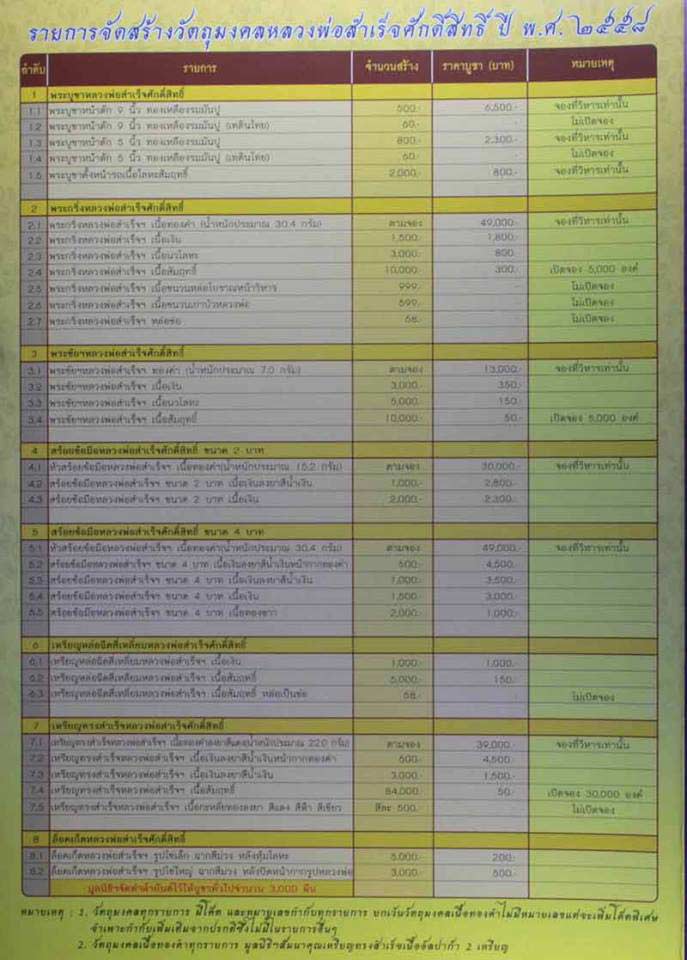 รายการจัดสร้างวัตถุมงคลหลวงพ่อสำเร็จศักดิ์สิทธิ์ ปี พ.ศ. ๒๕๕๘
ลำดับ รายการ จำนวนสร้าง ราคาบูชา (บาท) หมายเหตุ
1 พระบูชาหลวงพ่อสำเร็จศักดิ์สิทธิ์
1.1 พระบูชาหน้าตัก 9 นิ้ว ทองเหลืองรมมันปู 500.- 6,500.- จองที่วิหารเท่านั้น
1.2 พระบูชาหน้าตัก 9 นิ้ว ทองเหลืองรมมันปู (เทดินไทย) 60.- - ไม่เปิดจอง
1.3 พระบูชาหน้าตัก 5 นิ้ว ทองเหลืองรมมันปู 800.- 2,300.- จองที่วิหารเท่านั้น
1.4 พระบูชาหน้าตัก 5 นิ้ว ทองเหลืองรมมันปู (เทดินไทย) 60.- - ไม่เปิดจอง
1.5 พระบูชาตั้งหน้ารถเนื้อโลหะสัมฤทธิ์ 2,000.- 800.- จองที่วิหารเท่านั้น
2 พระกริ่งหลวงพ่อสำเร็จศักดิ์สิทธิ์
2.1 พระกริ่งหลวงพ่อสำเร็จฯ เนื้อทองคำ (น้ำหนักประมาณ 30.4 กรัม) ตามจอง 49,000.- จองที่วิหารเท่านั้น
2.2 พระกริ่งหลวงพ่อสำเร็จฯ เนื้อเงิน 1,500.- 1,800.-
2.3 พระกริ่งหลวงพ่อสำเร็จฯ เนื้อนวโลหะ 3,000.- 800.-
2.4 พระกริ่งหลวงพ่อสำเร็จฯ เนื้อสัมฤทธิ์ 10,000.- 300.- เปิดจอง 5,000 องค์
2.5 พระกริ่งหลวงพ่อสำเร็จฯ เนื้อชนวนหล่อโบราณหน้าวิหาร 999.- - ไม่เปิดจอง
2.6 พระกริ่งหลวงพ่อสำเร็จฯ เนื้อชนวนเบ้าบัวหลวงพ่อ 599.- - ไม่เปิดจอง
2.7 พระกริ่งหลวงพ่อสำเร็จฯ หล่อช่อ 58.- - ไม่เปิดจอง
3 พระชัยฯหลวงพ่อสำเร็จศักดิ์สิทธิ์
3.1 พระชัยฯหลวงพ่อสำเร็จฯ ทองคำ (น้ำหนักประมาณ 7.0 กรัม) ตามจอง 13,000.- จองที่วิหารเท่านั้น
3.2 พระชัยฯหลวงพ่อสำเร็จฯ เนื้อเงิน 3,000.- 350.-
3.3 พระชัยฯหลวงพ่อสำเร็จฯ เนื้อนวโลหะ 5,000.- 150.-
3.4 พระชัยฯหลวงพ่อสำเร็จฯ เนื้อสัมฤทธิ์ 10,000.- 50.- เปิดจอง 5,000 องค์
4 สร้อยข้อมือหลวงพ่อสำเร็จศักดิ์สิทธิ์ ขนาด 2 บาท
4.1 หัวสร้อยข้อมือหลวงพ่อสำเร็จฯ เนื้อทองคำ(น้ำหนักประมาณ 15.2 กรัม) ตามจอง 30,000.- จองที่วิหารเท่านั้น
4.2 สร้อยข้อมือหลวงพ่อสำเร็จฯ ขนาด 2 บาท เนื้อเงินลงยาสีน้ำเงิน 1,000.- 2,800.-
4.3 สร้อยข้อมือหลวงพ่อสำเร็จฯ ขนาด 2 บาท เนื้อเงิน 2,000.- 2,300.-
5 สร้อยข้อมือหลวงพ่อสำเร็จศักดิ์สิทธิ์ ขนาด 4 บาท
5.1 หัวสร้อยข้อมือหลวงพ่อสำเร็จฯ เนื้อทองคำ(น้ำหนักประมาณ 30.4 กรัม) ตามจอง 49,000.- จองที่วิหารเท่านั้น
5.2 สร้อยข้อมือหลวงพ่อสำเร็จฯ ขนาด 4 บาท เนื้อเงินลงยาสีน้ำเงินหน้ากากทองคำ 500.- 4,500.-
5.3 สร้อยข้อมือหลวงพ่อสำเร็จฯ ขนาด 4 บาท เนื้อเงินลงยาสีน้ำเงิน 1,000.- 3,500.-
5.4 สร้อยข้อมือหลวงพ่อสำเร็จฯ ขนาด 4 บาท เนื้อเงิน 1,500.- 3,000.-
5.5 สร้อยข้อมือหลวงพ่อสำเร็จฯ ขนาด 4 บาท เนื้อทองขาว 2,000.- 1,000.-
6 เหรียญหล่อฉีดสี่เหลี่ยมหลวงพ่อสำเร็จศักดิ์สิทธิ์
6.1 เหรียญหล่อฉีดสี่เหลี่ยมหลวงพ่อสำเร็จฯ เนื้อเงิน 1,000.- 1,000.-
6.2 เหรียญหล่อฉีดสี่เหลี่ยมหลวงพ่อสำเร็จฯ เนื้อสัมฤทธิ์ 5,000.- 150.-
6.3 เหรียญหล่อฉีดสี่เหลี่ยมหลวงพ่อสำเร็จฯ เนื้อสัมฤทธิ์ หล่อเป็นช่อ 58.- - ไม่เปิดจอง
7 เหรียญทรงสำเร็จหลวงพ่อสำเร็จศักดิ์สิทธิ์
7.1 เหรียญทรงสำเร็จหลวงพ่อสำเร็จฯ เนื้อทองคำลงยาสีแดง(น้ำหนักประมาณ 22.0 กรัม) ตามจอง 39,000.- จองที่วิหารเท่านั้น
7.2 เหรียญทรงสำเร็จหลวงพ่อสำเร็จฯ เนื้อเงินลงยาสีน้ำเงินหน้ากากทองคำ 500.- 4,500.-
7.3 เหรียญทรงสำเร็จหลวงพ่อสำเร็จฯ เนื้อเงินลงยาสีน้ำเงิน 3,000.- 1,500.-
7.4 เหรียญทรงสำเร็จหลวงพ่อสำเร็จฯ เนื้อสัมฤทธิ์ 84,000.- 50.- เปิดจอง 30,000 องค์
7.5 เหรียญทรงสำเร็จหลวงพ่อสำเร็จฯ เนื้อกะหลั่ยทองลงยา สีแดง สีฟ้า สีเขียว สีละ 500.- ไม่เปิดจอง
8 ล็อคเก็ตหลวงพ่อสำเร็จศักดิ์สิทธิ์
8.1 ล็อคเก็ตหลวงพ่อสำเร็จฯ รูปไข่เล็ก ฉากสีม่วง หลังหุ้มโลหะ 5,000.- 200.-
8.2 ล็อคเก็ตหลวงพ่อสำเร็จฯ รูปไข่ใหญ่ ฉากสีม่วง หลังปิดหน้ากากรูปหลวงพ่อ 3,000.- 500.-
มูลนิธิฯจัดทำผ้ายันต์ไว้ให้บูชาทั่วไปจำนวน 3,000 ผืน
หมายเหตุ : 1. วัตถุมงคลทุกรายการ มีโค๊ด และหมายเลขกำกับทุกรายการ ยกเว้นวัตถุมงคลเนื้อทองคำไม่มีหมายเลขแต่จะเพิ่มโค๊ดพิเศษ
จำเพาะกำกับเพิ่มเติมจากปรกติซึ่งไม่มีในรายการอื่นๆ
2. วัตถุมงคลเนื้อทองคำทุกรายการ มูลนิธิฯสมนาคุณเหรียญทรงสำเร็จเนื้ออัลปาก้า 2 เหรียญ